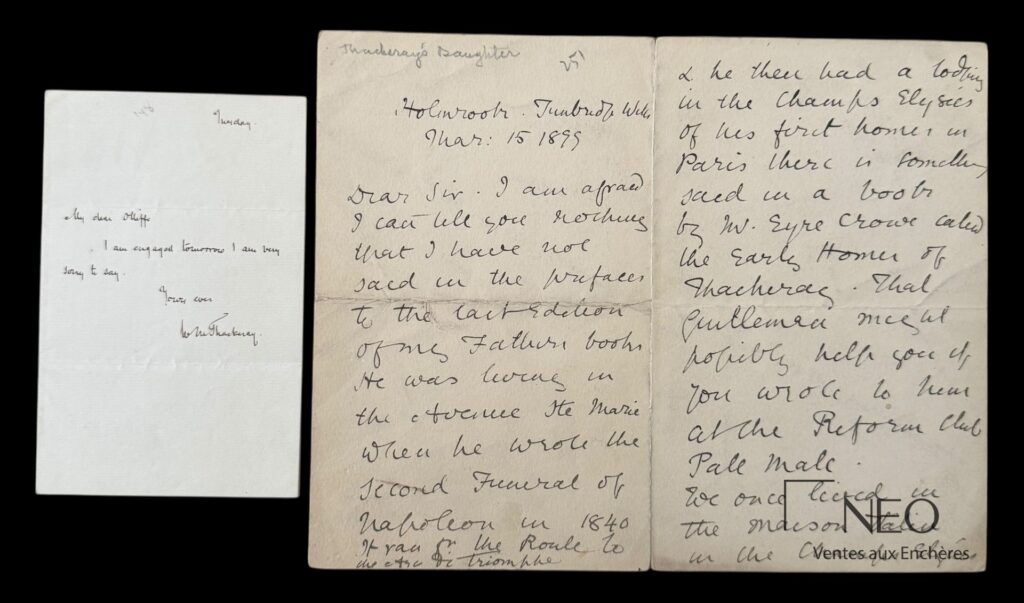 Tuesday.
My dear Olliffe
I am engaged tomorrow I am very
sorry to say.
Yours ever
W M Thackeray.
Thackeray's Daughter
251
Holmrook. Tunbridge Wells
Mar: 15 1899
Dear Sir. I am afraid
I can tell you nothing
that I have not
said in the prefaces
to the last Edition
of my Fathers books
He was living in
the Avenue Ste Marie
when he wrote the
Second Funeral of
Napoleon in 1840
It ran the Route to
the Arc de triomphe
& he then had a lodging
in the Champs Elysées
of his first homes in
Paris there is something
said in a book
by Mr. Eyre Crowe called
the Early Homes of
Thackeray. That
Gentleman might
possibly help you if
you wrote to him
at the Reform Club
Pall Mall.
We once lived in
the Maison
in the Champs Elysées
NEO
Ventes aux Enchères